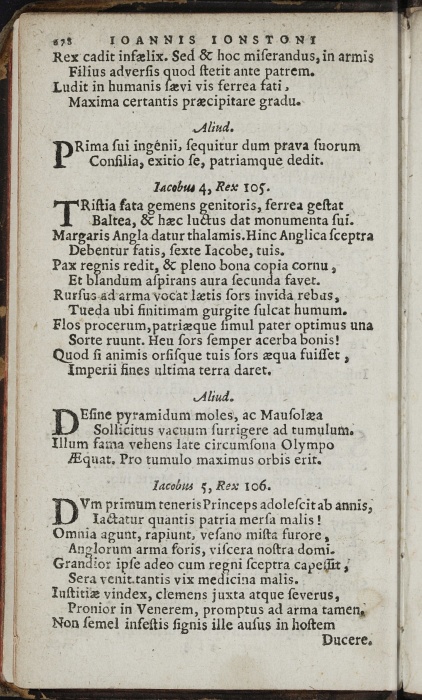 278 IOANNIS IONSTONI
Rex cadit infælix. Sed & hoc miſerandus, in armis
Filius adverſis quod ſtetit ante patrem.
Ludit in humanis ſævi vis ferrea fati,
Maxima certantis præcipitare gradu.
Aliud.
PRima ſui ingenii, ſequitur dum prava ſuorum
Conſilia, exitio ſe, patriamque dedit.
Iacobus 4, Rex 105.
TRiſtia fata gemens genitoris, ferrea geſtat
Baltea, & hæc luctus dat monumenta ſui.
Margaris Angla datur thalamis. Hinc Anglica ſceptra
Debentur fatis, ſexte Iacobe, tuis.
Pax regnis redit, & pleno bona copia cornu,
Et blandum aſpirans aura ſecunda favet.
Rurſus ad arma vocat lætis ſors invida rebus,
Tueda ubi finitimam gurgite ſulcat humum.
Flos procerum, patriæque ſimul pater optimus una
Sorte ruunt. Heu ſors ſemper acerba bonis!
Quod ſi animis orſiſque tuis ſors æqua fuiſſet,
Imperii fines ultima terra daret.
Aliud.
DEſine pyramidum moles, ac Mauſolæa
Sollicitus vacuum ſurrigere ad tumulum.
Illum fama vehens late circumſona Olympo
Æquat. Pro tumulo maximus orbis erit.
Iacobus 5, Rex 106.
DVm primum teneris Princeps adoleſcit ab annis,
Iactatur quantis patria merſa malis!
Omnia agunt, rapiunt, veſano miſta furore,
Anglorum arma foris, viſcera noſtra domi.
Grandior ipſe adeo cum regni ſceptra capeſſit,
Sera venit tantis vix medicina malis.
Iuſtitiæ vindex, clemens juxta atque ſeverus,
Pronior in Venerem, promptus ad arma tamen.
Non ſemel infeſtis ſignis ille auſus in hoſtem
Ducere.